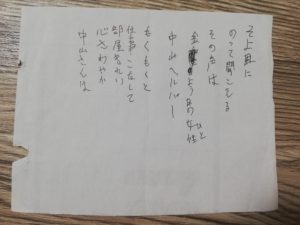 そよ風に
のって聞こえる
その声は
ようなの女性
ひと
中山ヘルパー
もくもくと
仕事こなして
部屋きれい
心さわやか
中山さんは